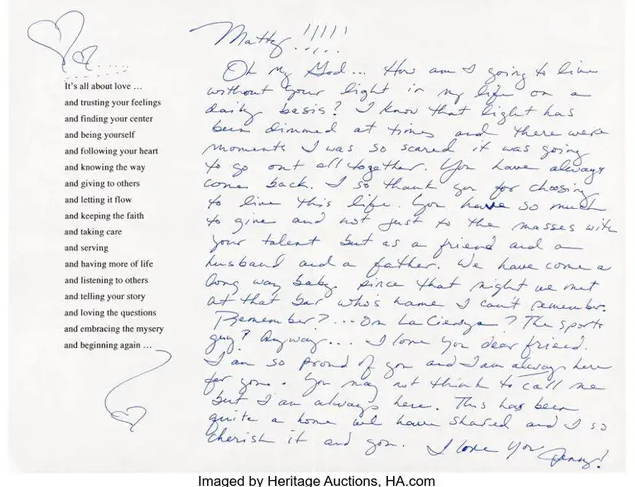 It's all about love ...
and trusting your feelings
and finding your center
and being yourself
and following your heart
and knowing the way
and giving to others
and letting it flow
and keeping the faith
and taking care
and serving
and having more of life
and listening to others
and telling your story
and loving the questions
and embracing the mysery
and beginning again ...
Matty!!!!!
Oh my God... How am I going to live
without your light in my life on a
daily basis? I know that light has
been dimmed at times and there were
moments I was so scared it was going
to go out all together. You have always
come back. I so thank you for choosing
to live this life. You have so much
to give and not just to the masses with
your talent but as a friend and a
husband and a father. We have come a
long way baby, since that night we met
at that bar who's name I can't remember.
Remember?... On La Cienega? The sports
guy? Anyway... I love you dear friend.
I am so proud of you and I am always here
for you. You may not think to call me
but I am always here. This has been
quite a home we have shared and I so
cherish it and you. I love you
Imaged by Heritage Auctions, HA.com